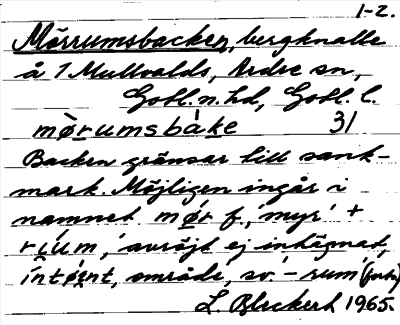 1-2.
Mörrumsbacken, bergknalle
å 1 Mullvalds, Ardre sn,
Gotl. n. hd, Gotl. l.
mø̀rumsbàke 31
Backen gränsar till sank-
mark. Möjligen ingår i
namnet mør f., 'myr' +
rum, 'avröjt ej inhägnat,
område, sv. - rum'
L. Bleckert 1965.